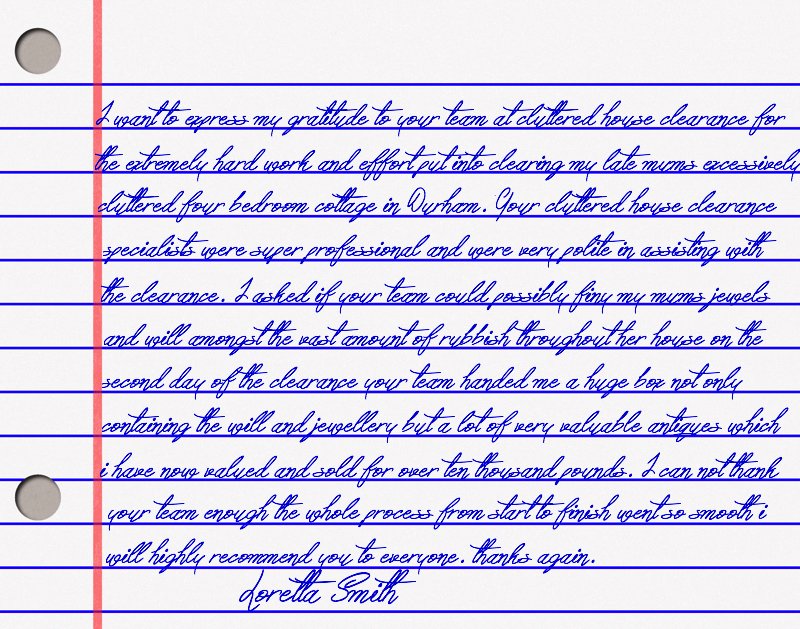 I want to express my gratitude to your team at cluttered house clearance for
the extremely hard work and effort put into clearing my late mums excessively
cluttered four bedroom cottage in Durham. Your cluttered house clearance
specialists were super professional and were very polite in assisting with
the clearance. I asked if your team could possibly finy my mums jewels
and will amongst the vast amount of rubbish throughout her house on the
second day of the clearance your team handed me a huge box not only
containing the will and jewellery but a lot of very valuable antiques which
i have now valued and sold for over ten thousand pounds. I can not thank
your team enough the whole process from start to finish went so smooth i
will highly recommend you to everyone. thanks again.
Loretta Smith